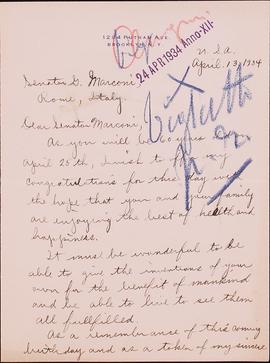 1234 PUTNAM AVE.
BROOKLYN, N.Y.
U.S.A.
24 APR 1934 Anno XII
April, 13, 1934
Senator G. Marconi,
Rome, Italy.
Dear Senator Marconi,
As you will be 60 years
April 25th, I wish to my
congratulations for this day with
the hope that you and your family
are enjoying the best of health and
happiness.
It must be wonderful to be
able to give the inventions of your
own for the benefit of mankind
and be able to live to see them
all fullfilled.
As a remembrance of this coming
birthday and as a token of my sincere